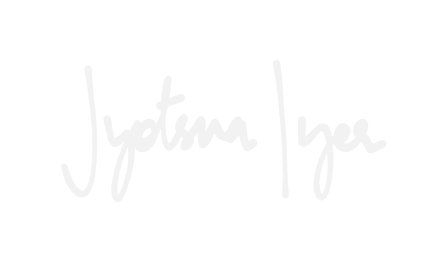 Jyotsna Iyer